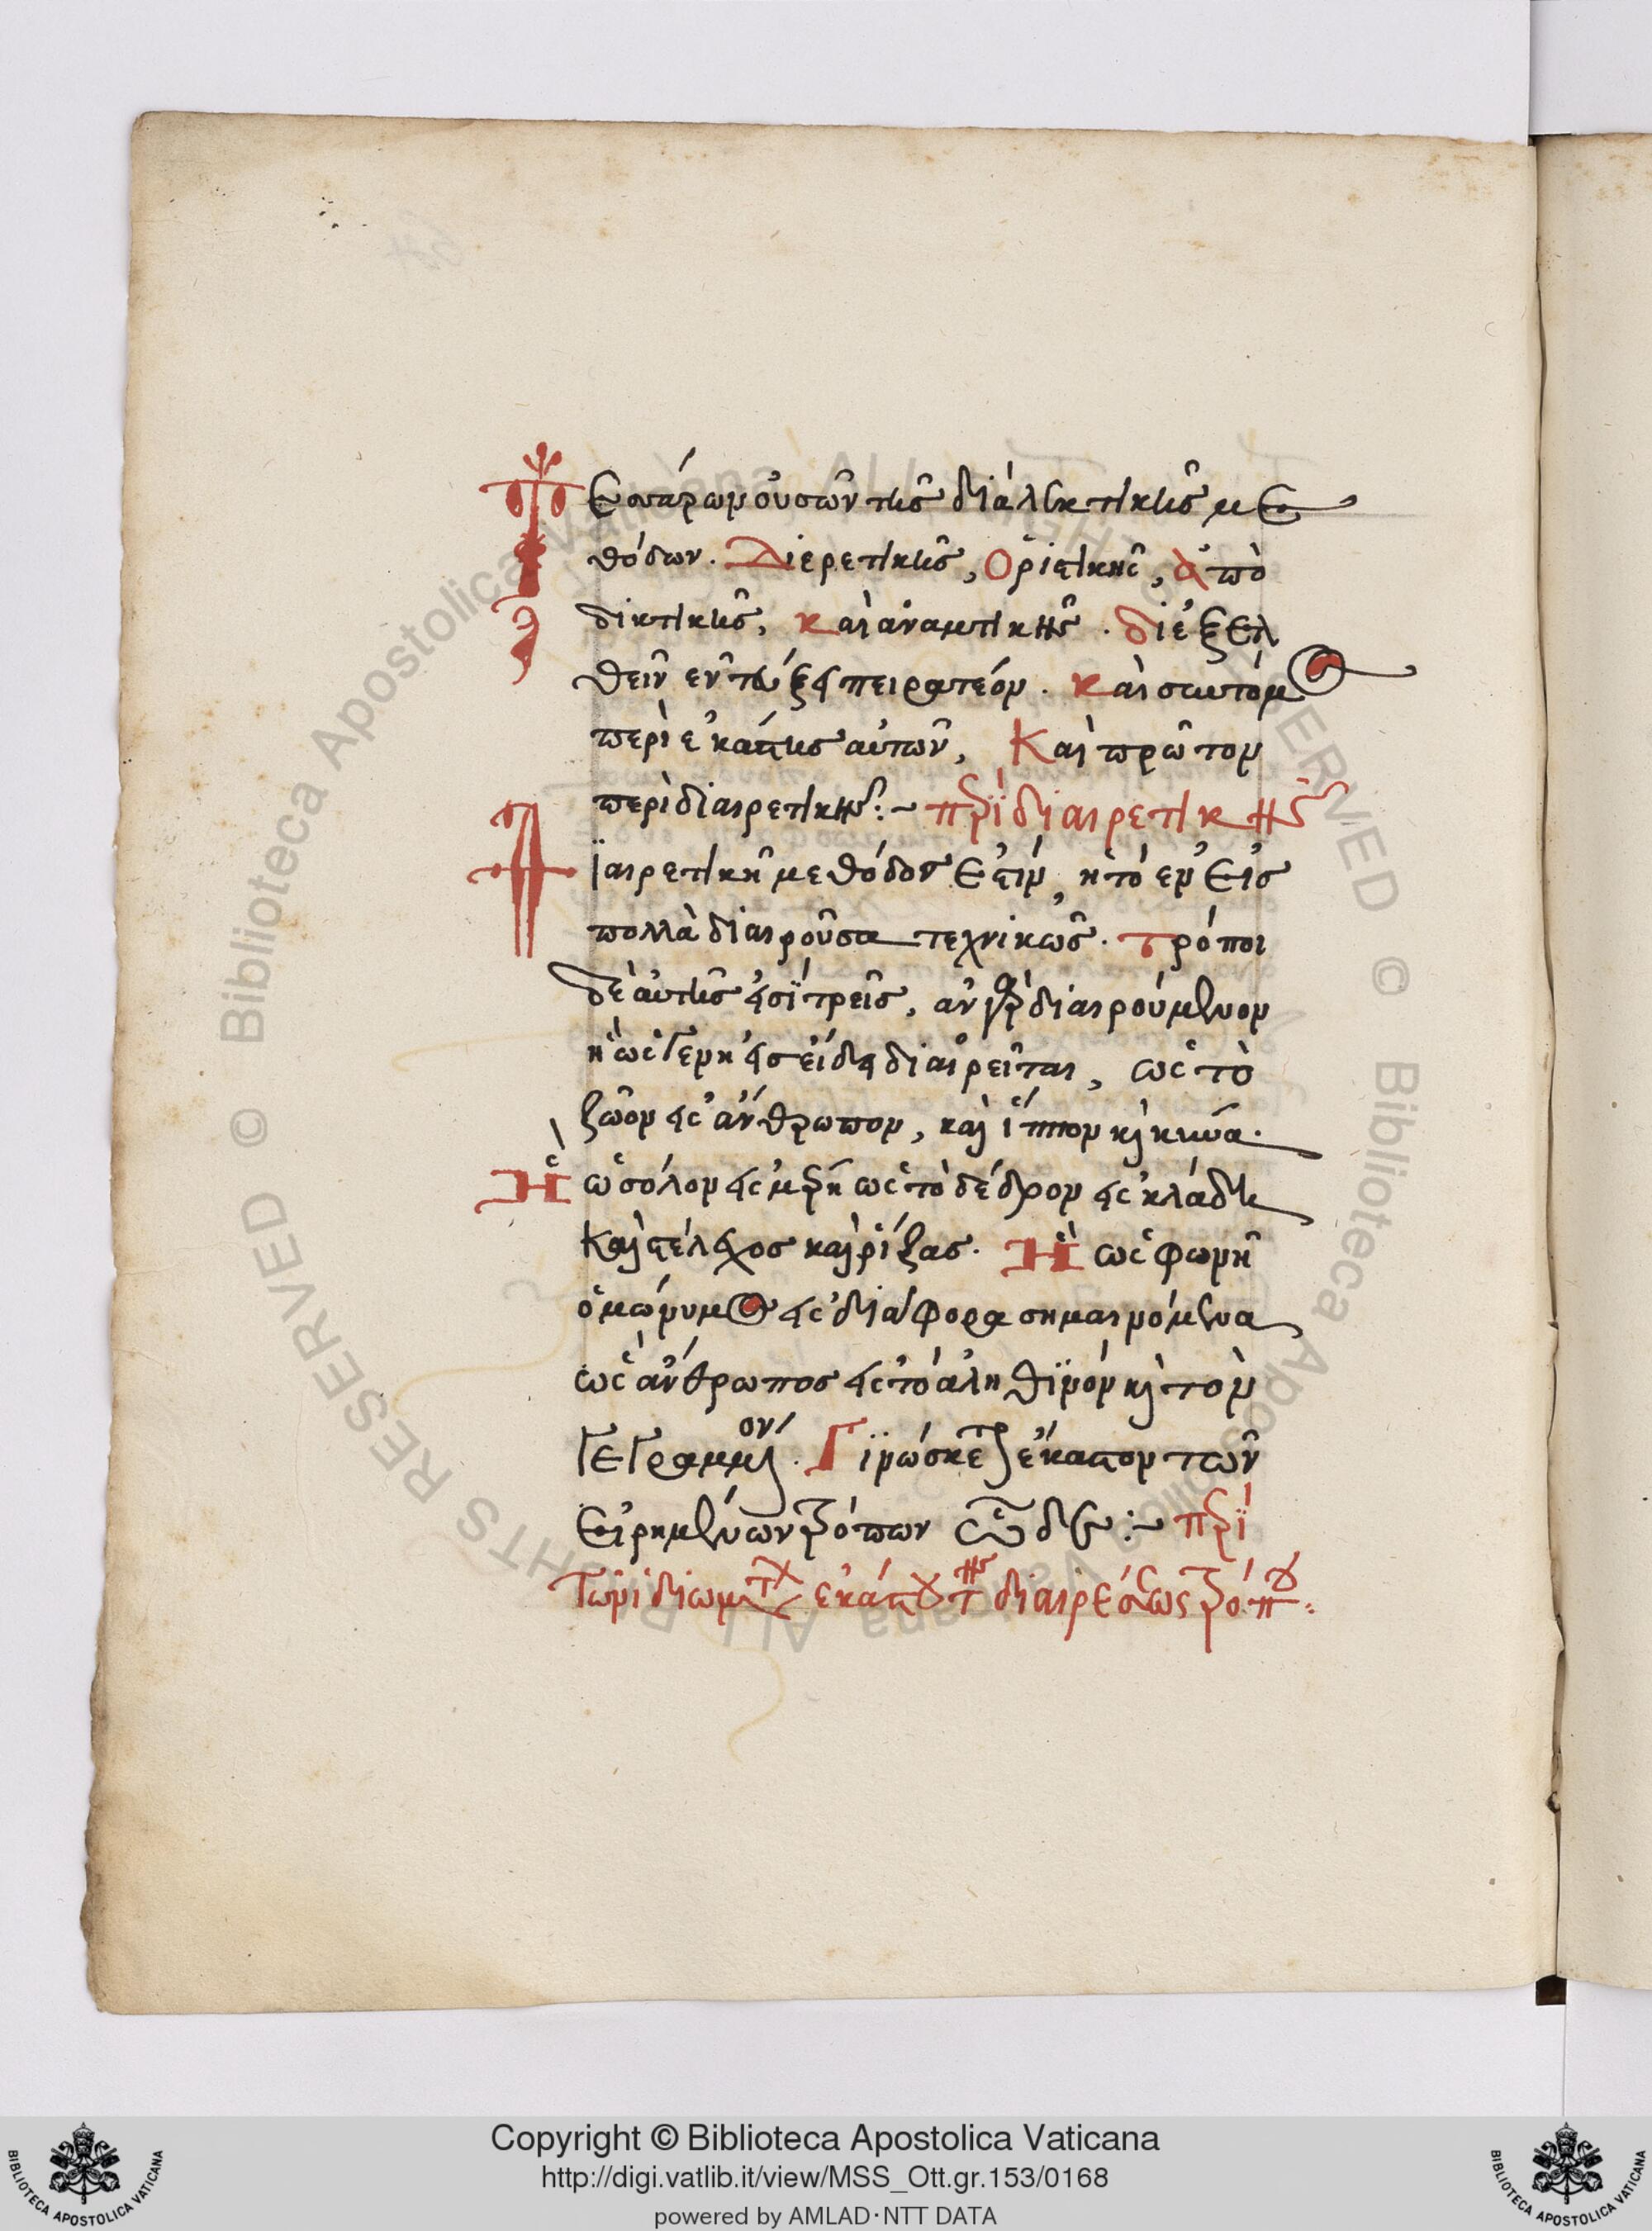 Τεσσάρων οὐσῶν τῆς διαλεκτικῆς με
θόδων. Διερετικῆς, Ὁριστικῆς, ἀπο
δικτικῆς, καὶ ἀναλυτικῆς. διεξελ
θεῖν ἐν τῶ ἑξ πειρατέον. Καὶ συντόμως
περὶ ἑκάστης αὐτῶν, Καὶ πρῶτον
περὶ διαιρετικῆς :~ περὶ διαιρετικῆς
Διαιρετικὴ μεθόδος ἐστὶν, ἡ τὸ ἐν εἰς
πολλὰ διαιροῦσα τεχνικῶς. τρόποι
δὲ αὐτῆς εἰσὶ τρεῖς, ἂν γὰρ διαιρούμενον
ἢ ὡς γένη εἰς εἴδει διαιρεῖται, ὡς τὸ
ζῶον εἰς ἄνθρωπον, καὶ ἵππον καὶ κύνα.
Ἢ ὡς ὅλον εἰς μέρη ὡς τὸ δένδρον εἰς κλάδη
Καὶ στέλεχος καὶ ῥίζας. Ἢ ὡς φωνὴ
ὁμώνυμος εἰς διάφορα σημαινόμενα
ὡς ἄνθρωπος εἰς τὸ ἀληθινόν καὶ τὸν
Γεγραμμένον. Γινώσκεται ἕκαστον τῶν
Εἰρημένων τρόπων ὧδε :~ περὶ
Τῶν ἰδιωμάτων ἑκάστου τῆς διαιρέσεως τρόπου :
Copyright © Biblioteca Apostolica Vaticana
http://digi.vatlib.it/view/MSS_Ott.gr.153/0168
powered by AMLAD·NTT DATA